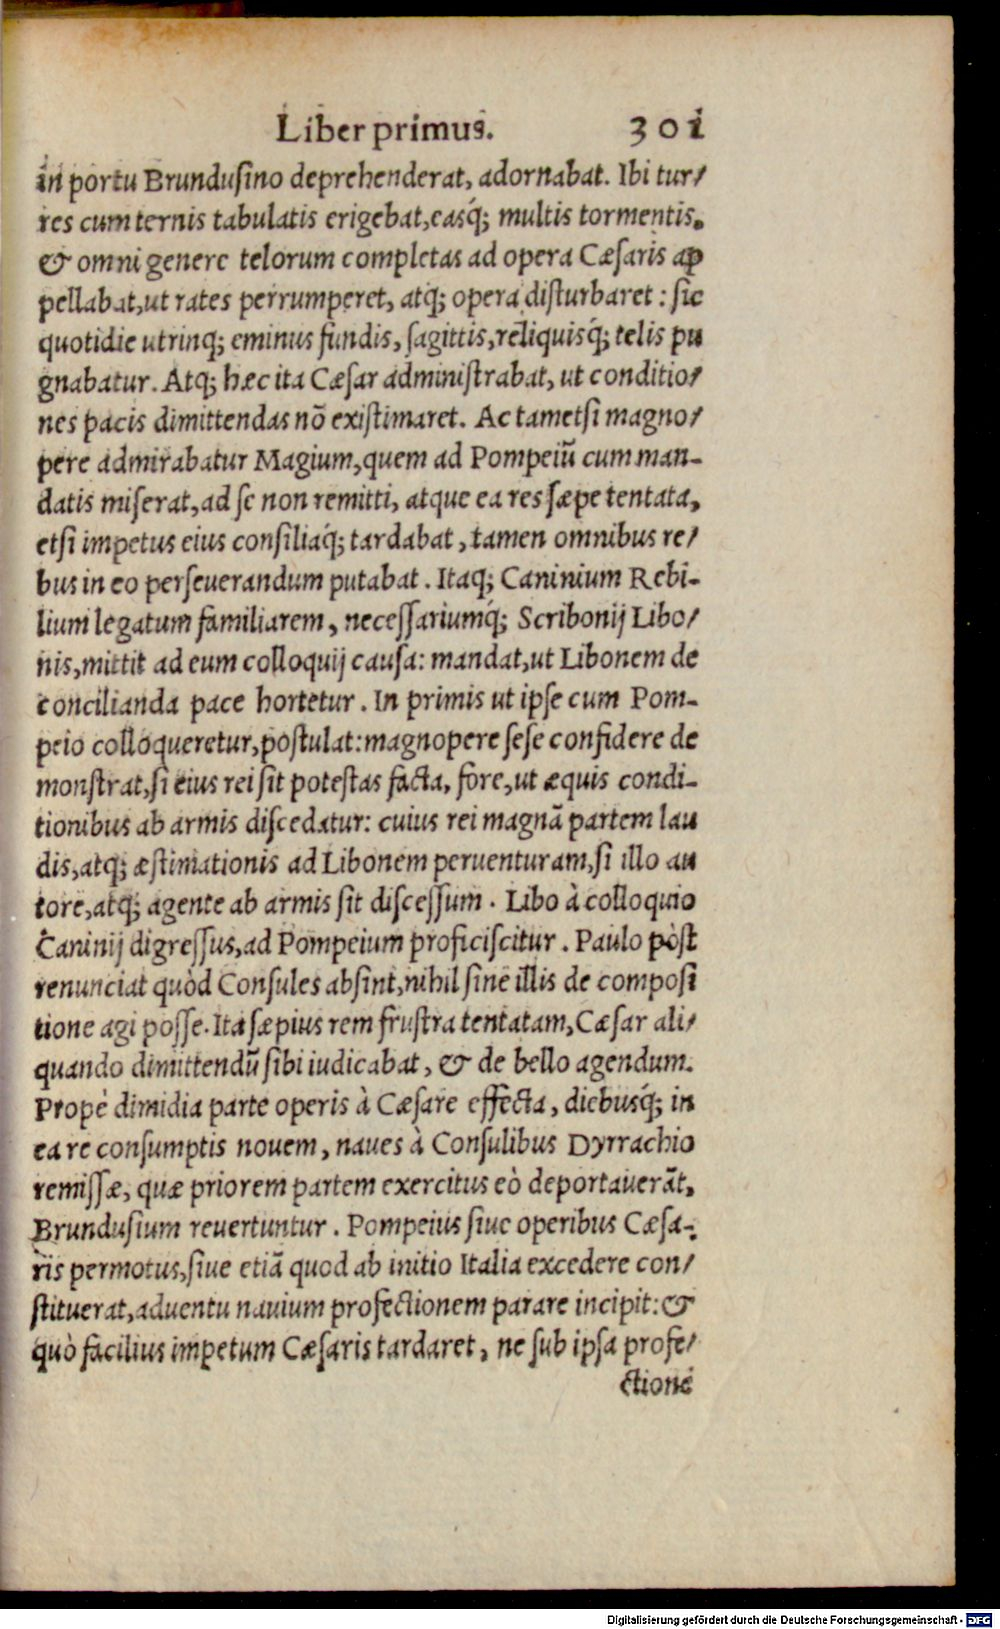 Liber primus. 301
in portu Brundusino deprehenderat, adornabat. Ibi tur/
res cum ternis tabulatis erigebat, easq́; multis tormentis.
& omni genere telorum completas ad opera Cæsaris ap
pellabat, ut rates perrumperet, atq; opera disturbaret: sic
quotidie utrinq; eminus fundis, sagittis, reliquisq́; telis pu
gnabatur. Atq; hæc ita Cæsar administrabat, ut conditio/
nes pacis dimittendas nō existimaret. Ac tametsi magno/
pere admirabatur Magium, quem ad Pompeiū cum man-
datis miserat, ad se non remitti, atque ea res sæpe tentata,
etsi impetus eius consiliaq́; tardabat, tamen omnibus re/
bus in eo perseuerandum putabat. Itaq; Caninium Rebi-
lium legatum familiarem, necessariumq́; Scribonij Libo/
nis, mittit ad eum colloquij causa: mandat, ut Libonem de
concilianda pace hortetur. In primis ut ipse cum Pom-
peio colloqueretur, postulat: magnopere sese confidere de
monstrat, si eius rei sit potestas facta, fore, ut æquis condi-
tionibus ab armis discedatur: cuius rei magnā partem lau
dis, atq; æstimationis ad Libonem peruenturam, si illo au
tore, atq; agente ab armis sit discessum. Libo à colloquio
Caninij digressus, ad Pompeium proficiscitur. Paulo pòst
renunciat quòd Consules absint, nihil sine illis de composi
tione agi posse. Ita sæpius rem frustra tentatam, Cæsar ali/
quando dimittendū sibi iudicabat, & de bello agendum.
Propè dimidia parte operis à Cæsare effecta, diebusq́; in
ea re consumptis nouem, naues à Consulibus Dyrrachio
remissæ, quæ priorem partem exercitus eò deportauerāt,
Brundusium reuertuntur. Pompeius siue operibus Cæsa-
ris permotus, siue etiā quod ab initio Italia excedere con/
stituerat, aduentu nauium profectionem parare incipit: &
quò facilius impetum Cæsaris tardaret, ne sub ipsa profe/
ctione
Digitalisierung gefördert durch die Deutsche Forschungsgemeinschaft - DFG